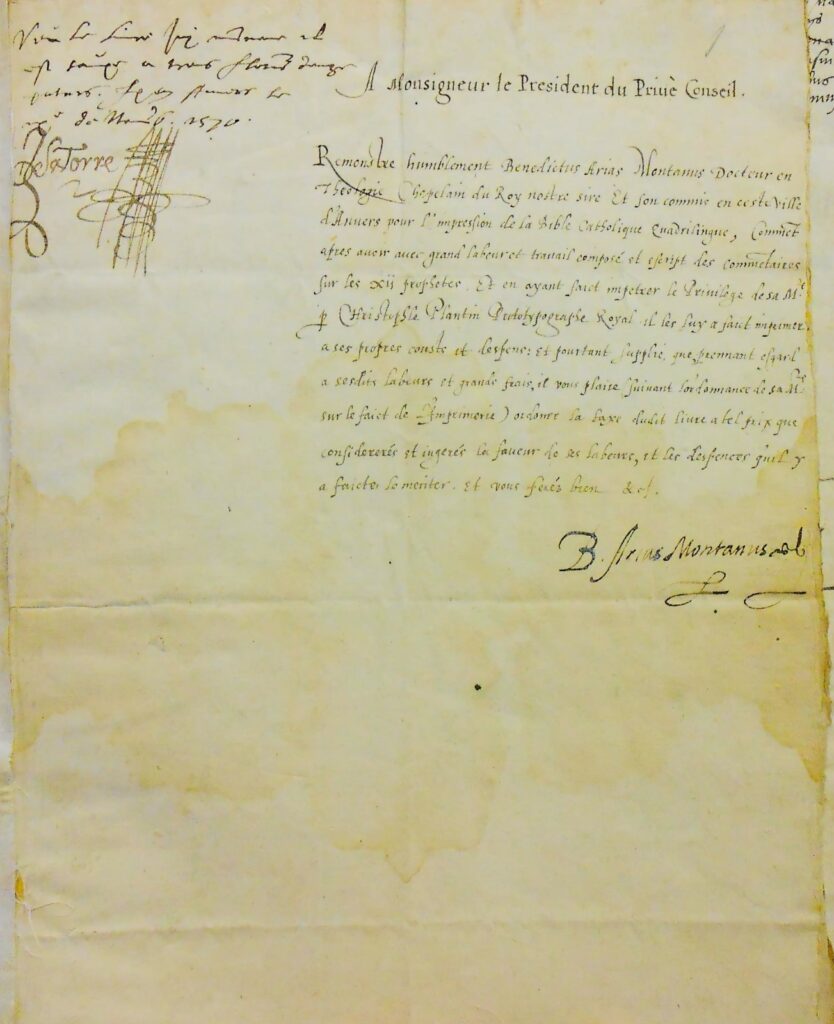 Veu le livre icy mentionne il
est tauxe a trois florins douze
patars.
1570.
De la Torre
A Monsigneur le President du Privè Conseil.
Remonstre humblement Benedictus Arias Montanus Docteur en
Theologie Chapelain du Roy nostre sire Et son commis en ceste Ville
d'Anvers pour l'impression de la Bible Catholique Quadrilingue, Comment
apres avoir avec grand labeur et travail composé et escript des commentaires
sur les xij prophetes. Et en ayant faict impetrer le Privilege de sa Mte
p Christophle Plantin Prototypographe Royal il les luy a faict imprimer
a ses propres cousts et despens: et pourtant supplie, que prennant esgard
a sesdits labeurs et grands frais, il vous plaise (suivant l'ordonnance de sa Mte
sur le faict de l'Imprimerie) ordonner la taxe dudit livre a tel prix que
considererés et jugerés la faveur de ses labeurs, et les despences qu'il y
a faictes le meriter. Et vous ferés bien &c/.
B. Arias Montanus